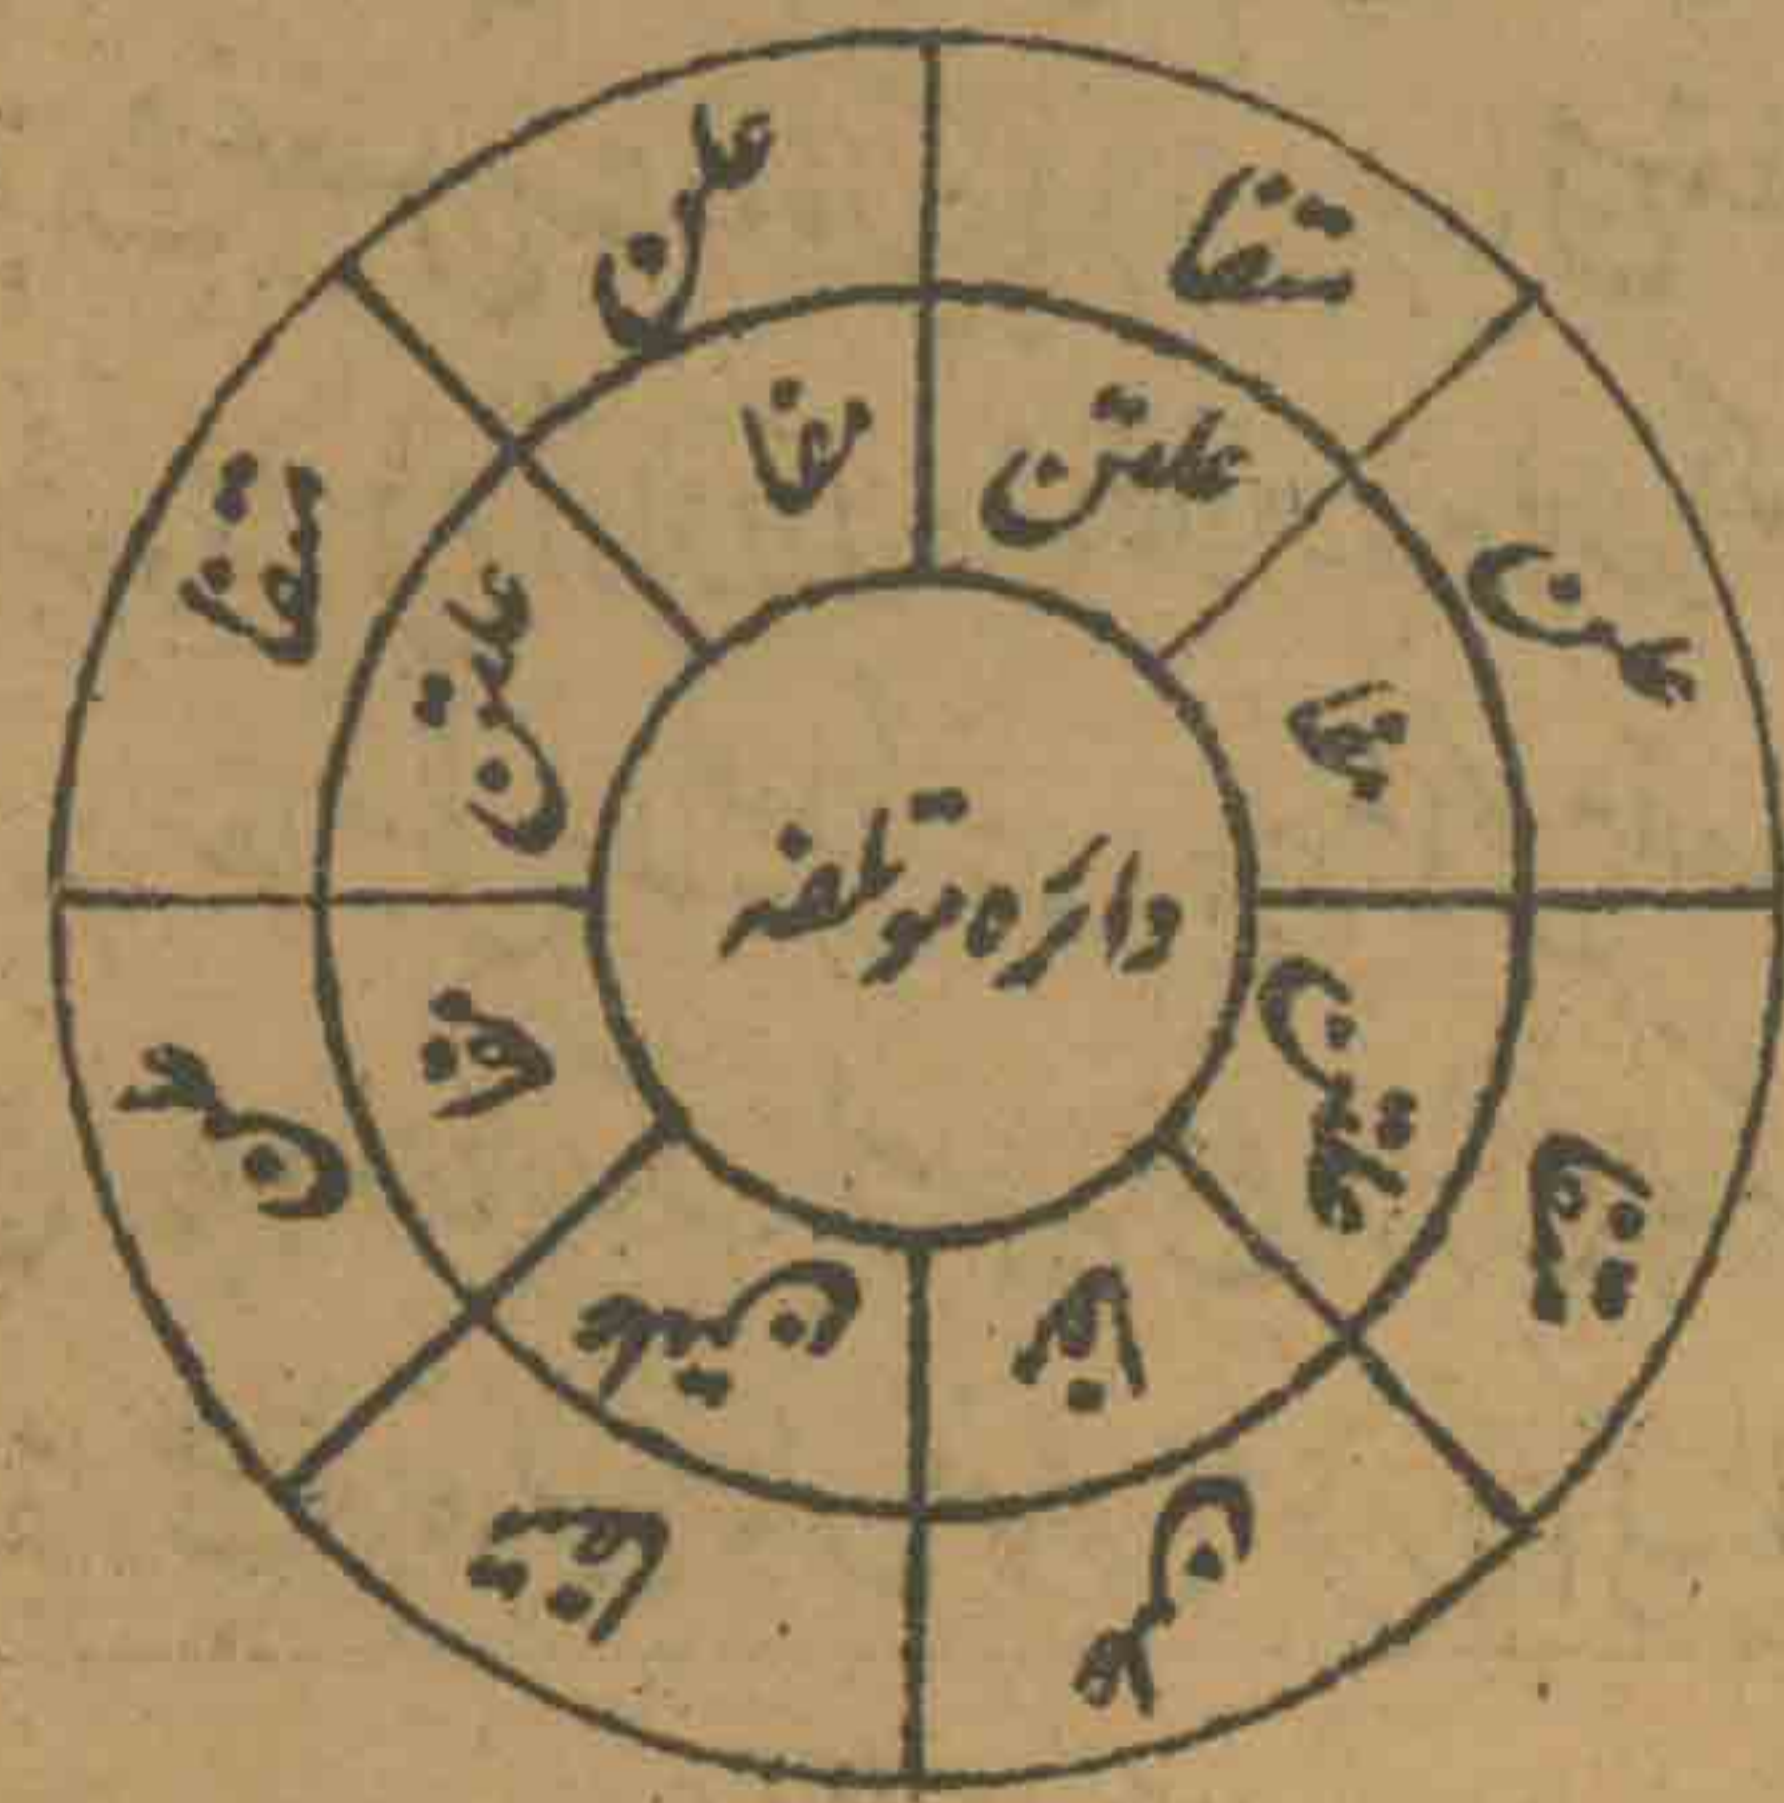 دائرہ موتلفہ
متفا
علن
متفا
علن
متفا
علن
متفا
علن
علتن
مفا
علتن
مفا
علتن
مفا
علتن
مفا